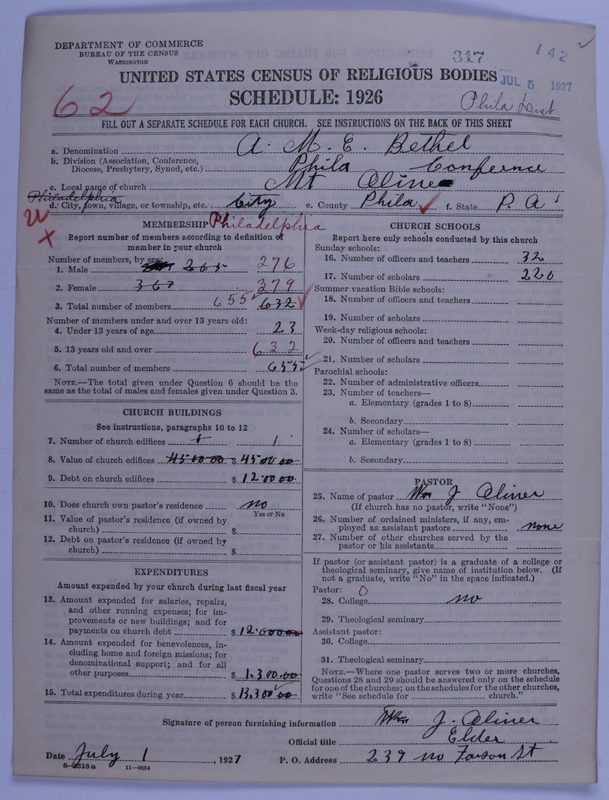 DEPARTMENT OF COMMERCE
BUREAU OF THE CENSUS
WASHINGTON
317
142
UNITED STATES CENSUS OF RELIGIOUS BODIES
JUL 5 1927
62
SCHEDULE: 1926
Phila Dist
FILL OUT A SEPARATE SCHEDULE FOR EACH CHURCH. SEE INSTRUCTIONS ON THE BACK OF THIS SHEET
a. Denomination A. M. E. Bethel
b. Division (Association, Conference, Diocese, Presbytery, Synod, etc.) Phila Conference
c. Local name of church Mt Olive
Philadelphia
d. City, town, village, or township, etc. City e. County Phila f. State P. A
Philadelphia
MEMBERSHIP
Report number of members according to definition of member in your church
Number of members, by sex:
1. Male 265 276
2. Female 367 379
3. Total number of members 655 632
Number of members under and over 13 years old:
4. Under 13 years of age 23
5. 13 years old and over 632
6. Total number of members 655
NOTE.—The total given under Question 6 should be the same as the total of males and females given under Question 3.
CHURCH BUILDINGS
See instructions, paragraphs 10 to 12
7. Number of church edifices 1 1
8. Value of church edifices 45000.00 $ 45000.00
9. Debt on church edifices $ 12000.00
10. Does church own pastor's residence no
Yes or No
11. Value of pastor's residence (if owned by church) $
12. Debt on pastor's residence (if owned by church) $
EXPENDITURES
Amount expended by your church during last fiscal year
13. Amount expended for salaries, repairs, and other running expenses; for improvements or new buildings; and for payments on church debt $ 12.000.00
14. Amount expended for benevolences, including home and foreign missions; for denominational support; and for all other purposes $ 1.300.00
15. Total expenditures during year $ 13.300.00
CHURCH SCHOOLS
Report here only schools conducted by this church
Sunday schools:
16. Number of officers and teachers 32
17. Number of scholars 220
Summer vacation Bible schools:
18. Number of officers and teachers
19. Number of scholars
Week-day religious schools:
20. Number of officers and teachers
21. Number of scholars
Parochial schools:
22. Number of administrative officers
23. Number of teachers—
a. Elementary (grades 1 to 8)
b. Secondary
24. Number of scholars—
a. Elementary (grades 1 to 8)
b. Secondary
PASTOR
25. Name of pastor Wm J. Oliver
(If church has no pastor, write "None")
26. Number of ordained ministers, if any, employed as assistant pastors none
27. Number of other churches served by the pastor or his assistants
If pastor (or assistant pastor) is a graduate of a college or theological seminary, give name of institution below. (If not a graduate, write "No" in the space indicated.)
Pastor: 0
28. College no
29. Theological seminary
Assistant pastor:
30. College
31. Theological seminary
NOTE.—Where one pastor serves two or more churches, Questions 28 and 29 should be answered only on the schedule for one of the churches; on the schedules for the other churches, write "See schedule for church."
Signature of person furnishing information Wm J. Oliver
Official title Elder
Date July 1, 1927 P. O. Address 239 no Farson St
8—2318 a 11—9034